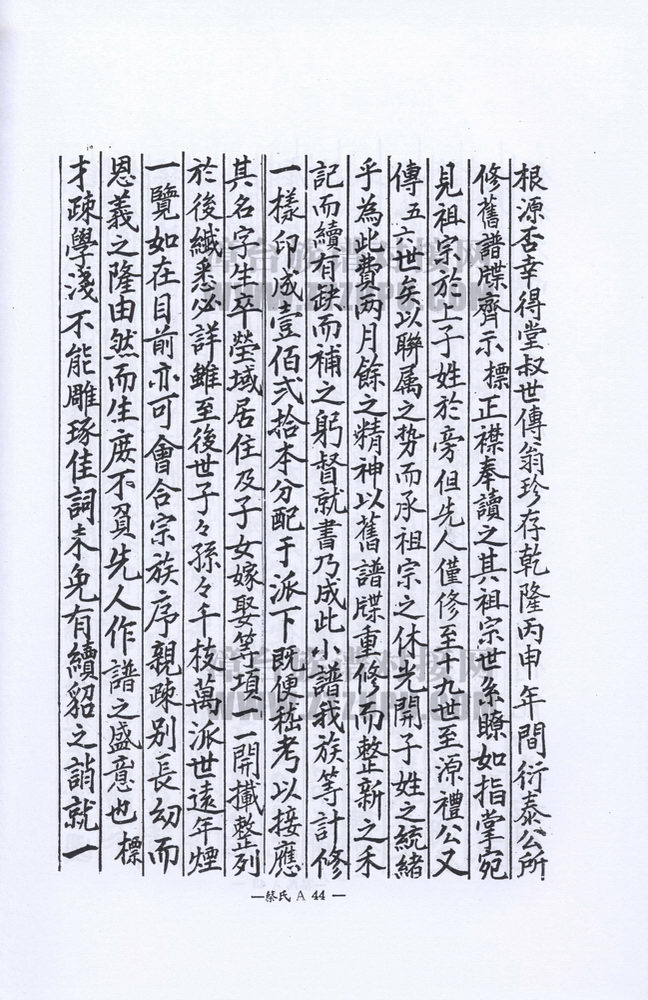 根源否幸得堂叔世傳翁珍存乾隆丙申年間衍泰公所
修舊譜牒齊示 標正襟奉讀之其祖宗世系瞭如指掌宛
見祖宗於上子姓於旁但先人僅修至十九世至源禮公又
傳五六世矣以聯属之势而承祖宗之休光開子姓之統緒
乎為此費两月餘之精神以舊譜牒重修而整新之禾
記而續有缺而補之躬督就書乃成此小譜我族等計修
一樣印成壹佰弍拾本分配于派下既便嵇考以接應
其名字生卒塋域居住及子女嫁娶等項一開攡整列
於後纎悉必詳雖至後世子々孫々千枝萬派世遠年煙
一覽如在目前亦可會合宗族序親疎别長幼而
恩義之隆由然而生庶不負先人作譜之盛意也 標
才疎學淺不能雕琢佳詞未免有續貂之誚就一
—蔡氏 A 44 —